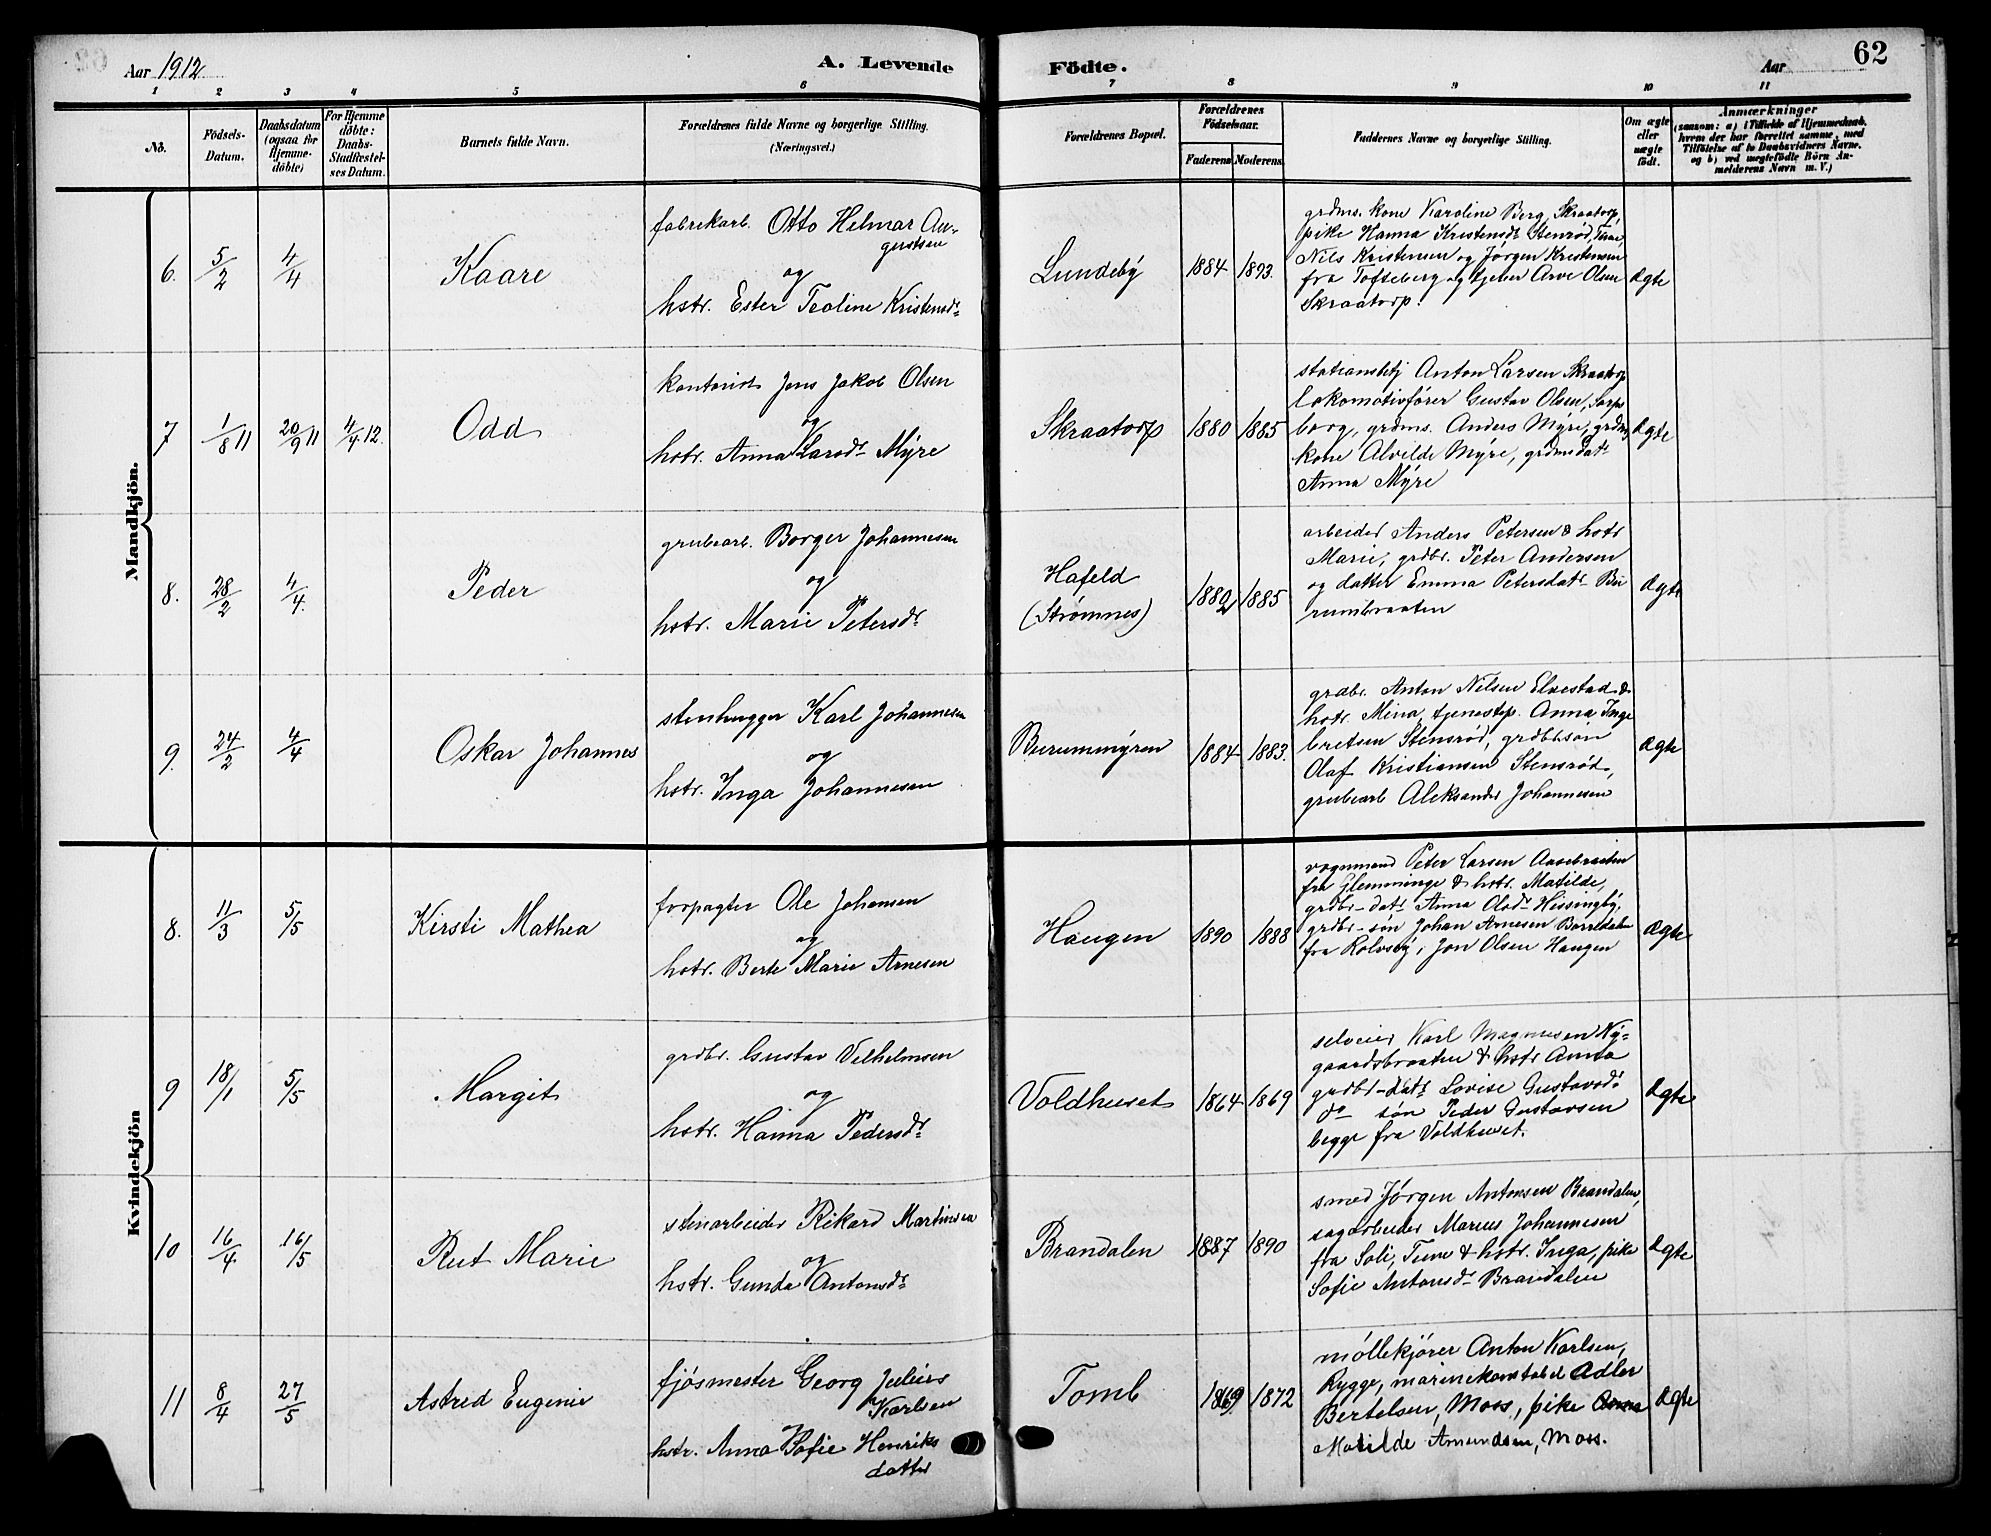 Aar 1912
A. Levende
Födte.
Aar
62
1 2 3 4 5 6 7 8 9 10 11
No.
Födsels-
Datum.
Daabsdatum
(ogsaa for
Hjemme-
döbte)
For Hjemme
döbte:
Daabs-
Stadfæstel-
ses Datum.
Barnets fulde Navn.
Forældrenes fulde Navne og borgerlige Stilling.
(Næringsvei.)
Forældrenes Bopæl.
Forældrenes
Födselsaar.
Faderens
Moderens.
Faddernes Navne og borgerlige Stilling.
Om ægte
eller
uægte
födt.
Anmærkninger
(saasom: a) i Tilfælde af Hjemmedaab,
hvem der har forrettet samme, med
Tilföielse af to Daabsvidners Navne.
og b) ved uægtefödte Börn An-
melderens Navn m. V.)
Mandkjön.
6. 5/2 4/4
Kaare
fabrekarb. Otto Helmar Au-
gustsen
og
hstr. Ester Teoline Kristensdr
Lundeby
1884 1893.
grdms. kone Karoline Berg, Skraatorp,
pike Hanna Kristensdr Stenrød, Tune,
Nils Kristensen og Jørgen Kristensen
fra Tofteberg og tjener Arve Olsen
Skraatorp.
ægte
7 1/8 11 20/9 11 4/4 12.
Odd
kontorist Jens Jakob Olsen
og
hstr. Anna Larsdr Myre
Skraatorp
1880 1885
stationsbetj Anton Larsen Skraatorp
lokomotivfører Gustav Olsen, Sarps
borg, grdms. Anders Myre, grdms
kone Alvilde Myre, grdmsdatr
Anna Myre
ægte
8. 28/2 4/4.
Peder
grubearb. Borger Johannesen
og
hstr. Marie Petersdr
Hafeld
(Strømnes)
1882 1885
arbeider Anders Petersen & hstr
Marie, grdbr. Peter Andersen
og datter Emma Petersdatr Bu
rumbraaten
ægte
9. 24/2 4/4
Oskar Johannes
stenhugger Karl Johannesen
og
hstr. Inga Johannesen
Burummyren
1884 1883.
grdbr. Anton Nilsen Elvestad &
hstr. Mina, tjenestep. Anna Inge
bretsen Stensrød, grdbrsøn
Olaf Kristiansen Stensrød,
grubearb Aleksander Johannesen
ægte
Kvindekjön
8. 11/3 5/5
Kirsti Mathea
forpagter Ole Johansen
og
hstr. Berte Marie Arnesen
Haugen
1890 1888
vognmand Peter Larsen Aasebraaten
fra Glemminge & hstr. Matilde,
grdbr-datr Anna Olsdr Hissingby,
grdbr-søn Johan Arnesen Borredalen
fra Rolvsøy, Jon Olsen Haugen
ægte
9 18/1 5/5
Margit
grdbr. Gustav Vilhelmsen
og
hstr. Hanna Pedersdr
Voldhuset
1864 1869
selveier Karl Magnusen Ny-
gaardsbraaten & hstr Anna
grdbr-datr Lovise Gustavsdr
do søn Peder Gustavsen
begge fra Voldhuset.
ægte
10 16/4 16/5
Rut Marie
stenarbeider Rikard Martinsen
og
hstr. Gunda Antonsdr
Brandalen
1887 1890
smed Jørgen Antonsen Brandalen,
sagarbeider Marius Johannesen
fra Soli, Tune & hstr. Inga, pike
Sofie Antonsdr Brandalen
ægte
11 8/4 27/5
Astrid Eugenie
fjøsmester Georg Julius
Karlsen
hstr. Anna Sofie Henriks
datter
Tomb
1869 1872
møllekjører Anton Karlsen,
Rygge, marinekonstabel Adler
Bertelsen, Moss, pike Anna
Matilde Amundsen, Moss.
ægte